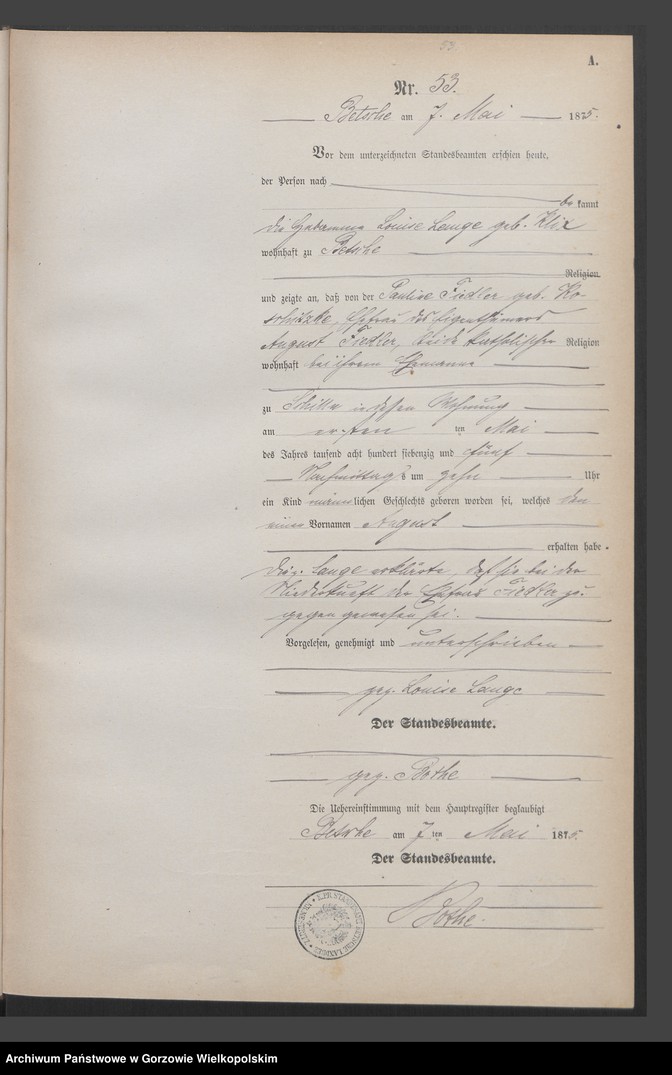 53.
A.
Nr. 53.
Betsche am 7. Mai 1875.
Vor dem unterzeichneten Standesbeamten erschien heute,
der Person nach
be kannt
die Hebamme Louise Lange geb. Klix
wohnhaft zu Betsche
Religion
und zeigte an, daß von der Pauline Fiedler geb. Ko-
schitzke, Ehefrau des Eigenthümers
August Fiedler, beide katholischer Religion
wohnhaft bei ihrem Ehemanne
zu in dessen Wohnung
am ersten ten Mai
des Jahres tausend acht hundert siebenzig und fünf
Nachmittags um zehn Uhr
ein Kind männlichen Geschlechts geboren worden sei, welches den
einen Vornamen August
erhalten habe.
Die p. Lange erklärte, daß sie bei der
Niederkunft der Ehefrau Fiedler zu-
gegen gewesen sei.
Vorgelesen, genehmigt und unterschrieben
gez. Louise Lange
Der Standesbeamte.
gez. Bothe
Die Uebereinstimmung mit dem Hauptregister beglaubigt
Betsche am 7 ten Mai 1875.
Der Standesbeamte.
Bothe.
Archiwum Państwowe w Gorzowie Wielkopolskim